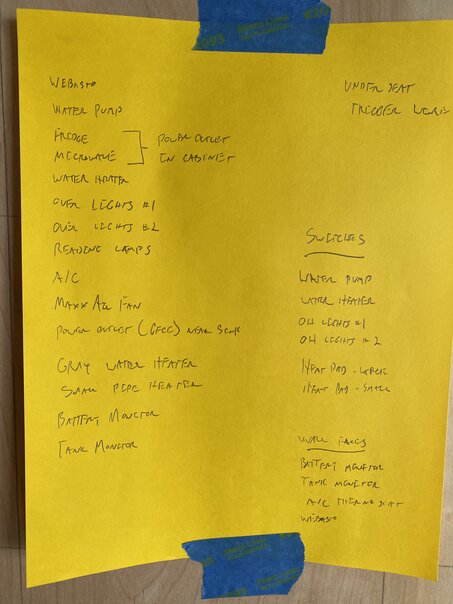 WEBASTO
WATER PUMP
FRIDGE
MICROWAVE
POWER OUTLET
IN CABINET
WATER HEATER
OVER LIGHTS #1
OVER LIGHTS #2
READING LAMPS
A/C
MAXX AIR FAN
POWER OUTLET (GFCI) NEAR SINK
GRAY WATER HEATER
SMALL PIPE HEATER
BATTERY MONITOR
TANK MONITOR
UNDER SEAT
TRIGGER WIRE
SWITCHES
WATER PUMP
WATER HEATER
OH LIGHTS #1
OH LIGHTS #2
HEAT PAD - LARGE
HEAT PAD - SMALL
WALL
BATTERY MONITOR
TANK MONITOR
A/C THERMOSTAT
WEBASTO